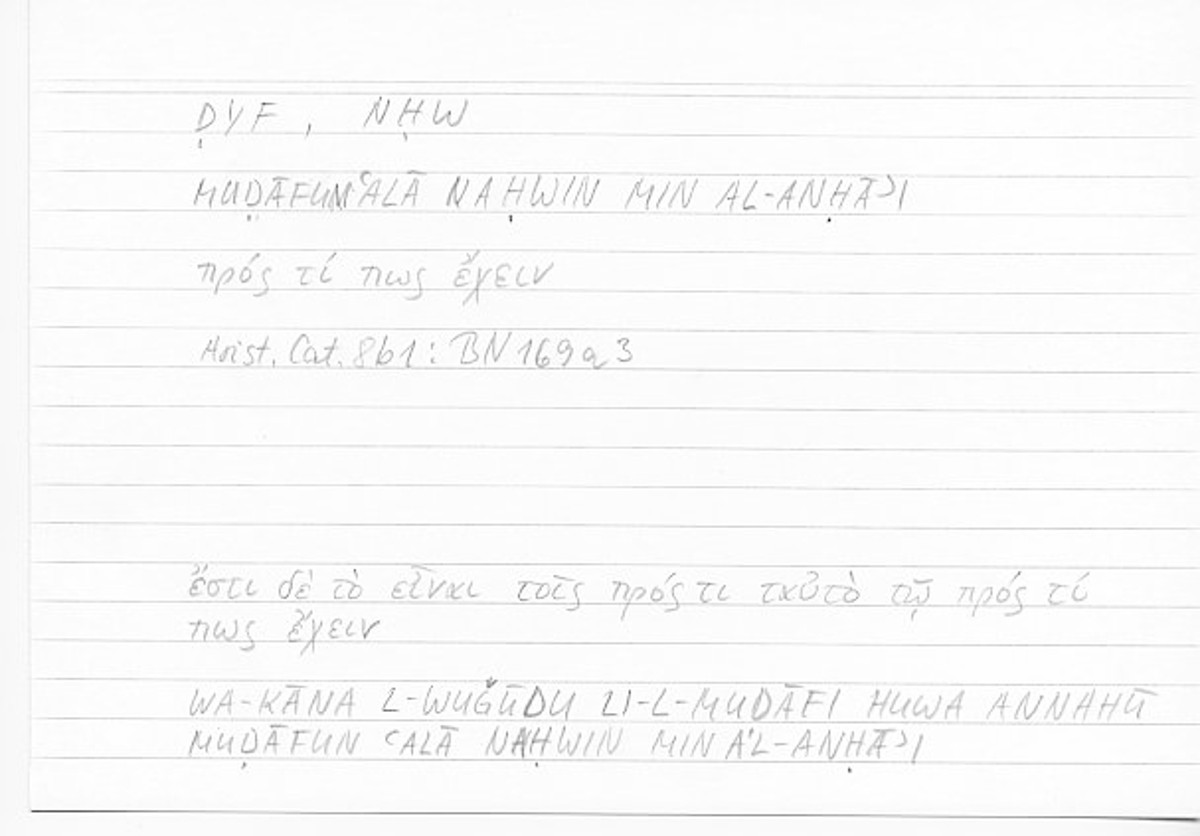 ḌYF , NḤW
MUḌĀFUN ʿALĀ NAḤWIN MIN AL-ANḤĀʾI
πρός τί πως ἔχειν
Arist. Cat. 8b1 : BN 169a3
ἔστι δὲ τὸ εἶναι τοῖς πρός τι ταὐτὸ τῷ πρός τί
πως ἔχειν
WA-KĀNA L-WUǦŪDU LI-L-MUḌĀFI HUWA ANNAHŪ
MUḌĀFUN ʿALĀ NAḤWIN MIN A'L-ANḤĀʾI